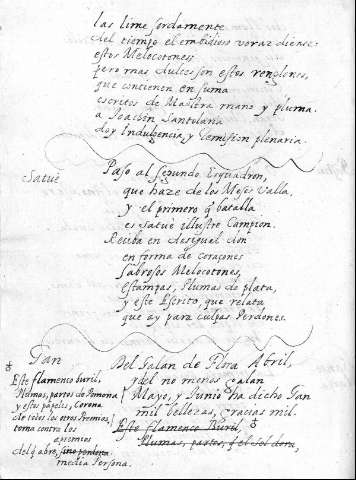 las lime sordamente
del tiempo el embidioso voraz diente
estos Melocotones
pero mas dulces son estos renglones,
que contienen en suma
escritos de Maestra mano y pluma.
a Joachin Santolaria
doy Indulgencia, y remision plenaria.
Satuè
Paso al segundo Esquadron,
que haze de los Meses Valla,
y el primero q̃ batalla
es Satuè illustre Campion.
Reciba en desigual don
en forma de coraçones
Sabrosos Melocotones,
estampas, Plumas de plata,
y este Escrito, que relata
que ay para culpas Perdones.
Tan
Del Galan de Flora Abril,
y del no menos galan
Mayo, y Junio ha dicho Tan
mil bellezas, gracias mil.
Este flamenco Buril,
Plumas, partos, q̃ el Sol dora,
Este flamenco buril,
Plumas, partos de Pomona
y estos papeles, Corona
de todos los otros Premios,
toma contra los
apremios
del q̃ abre,
media Persona.